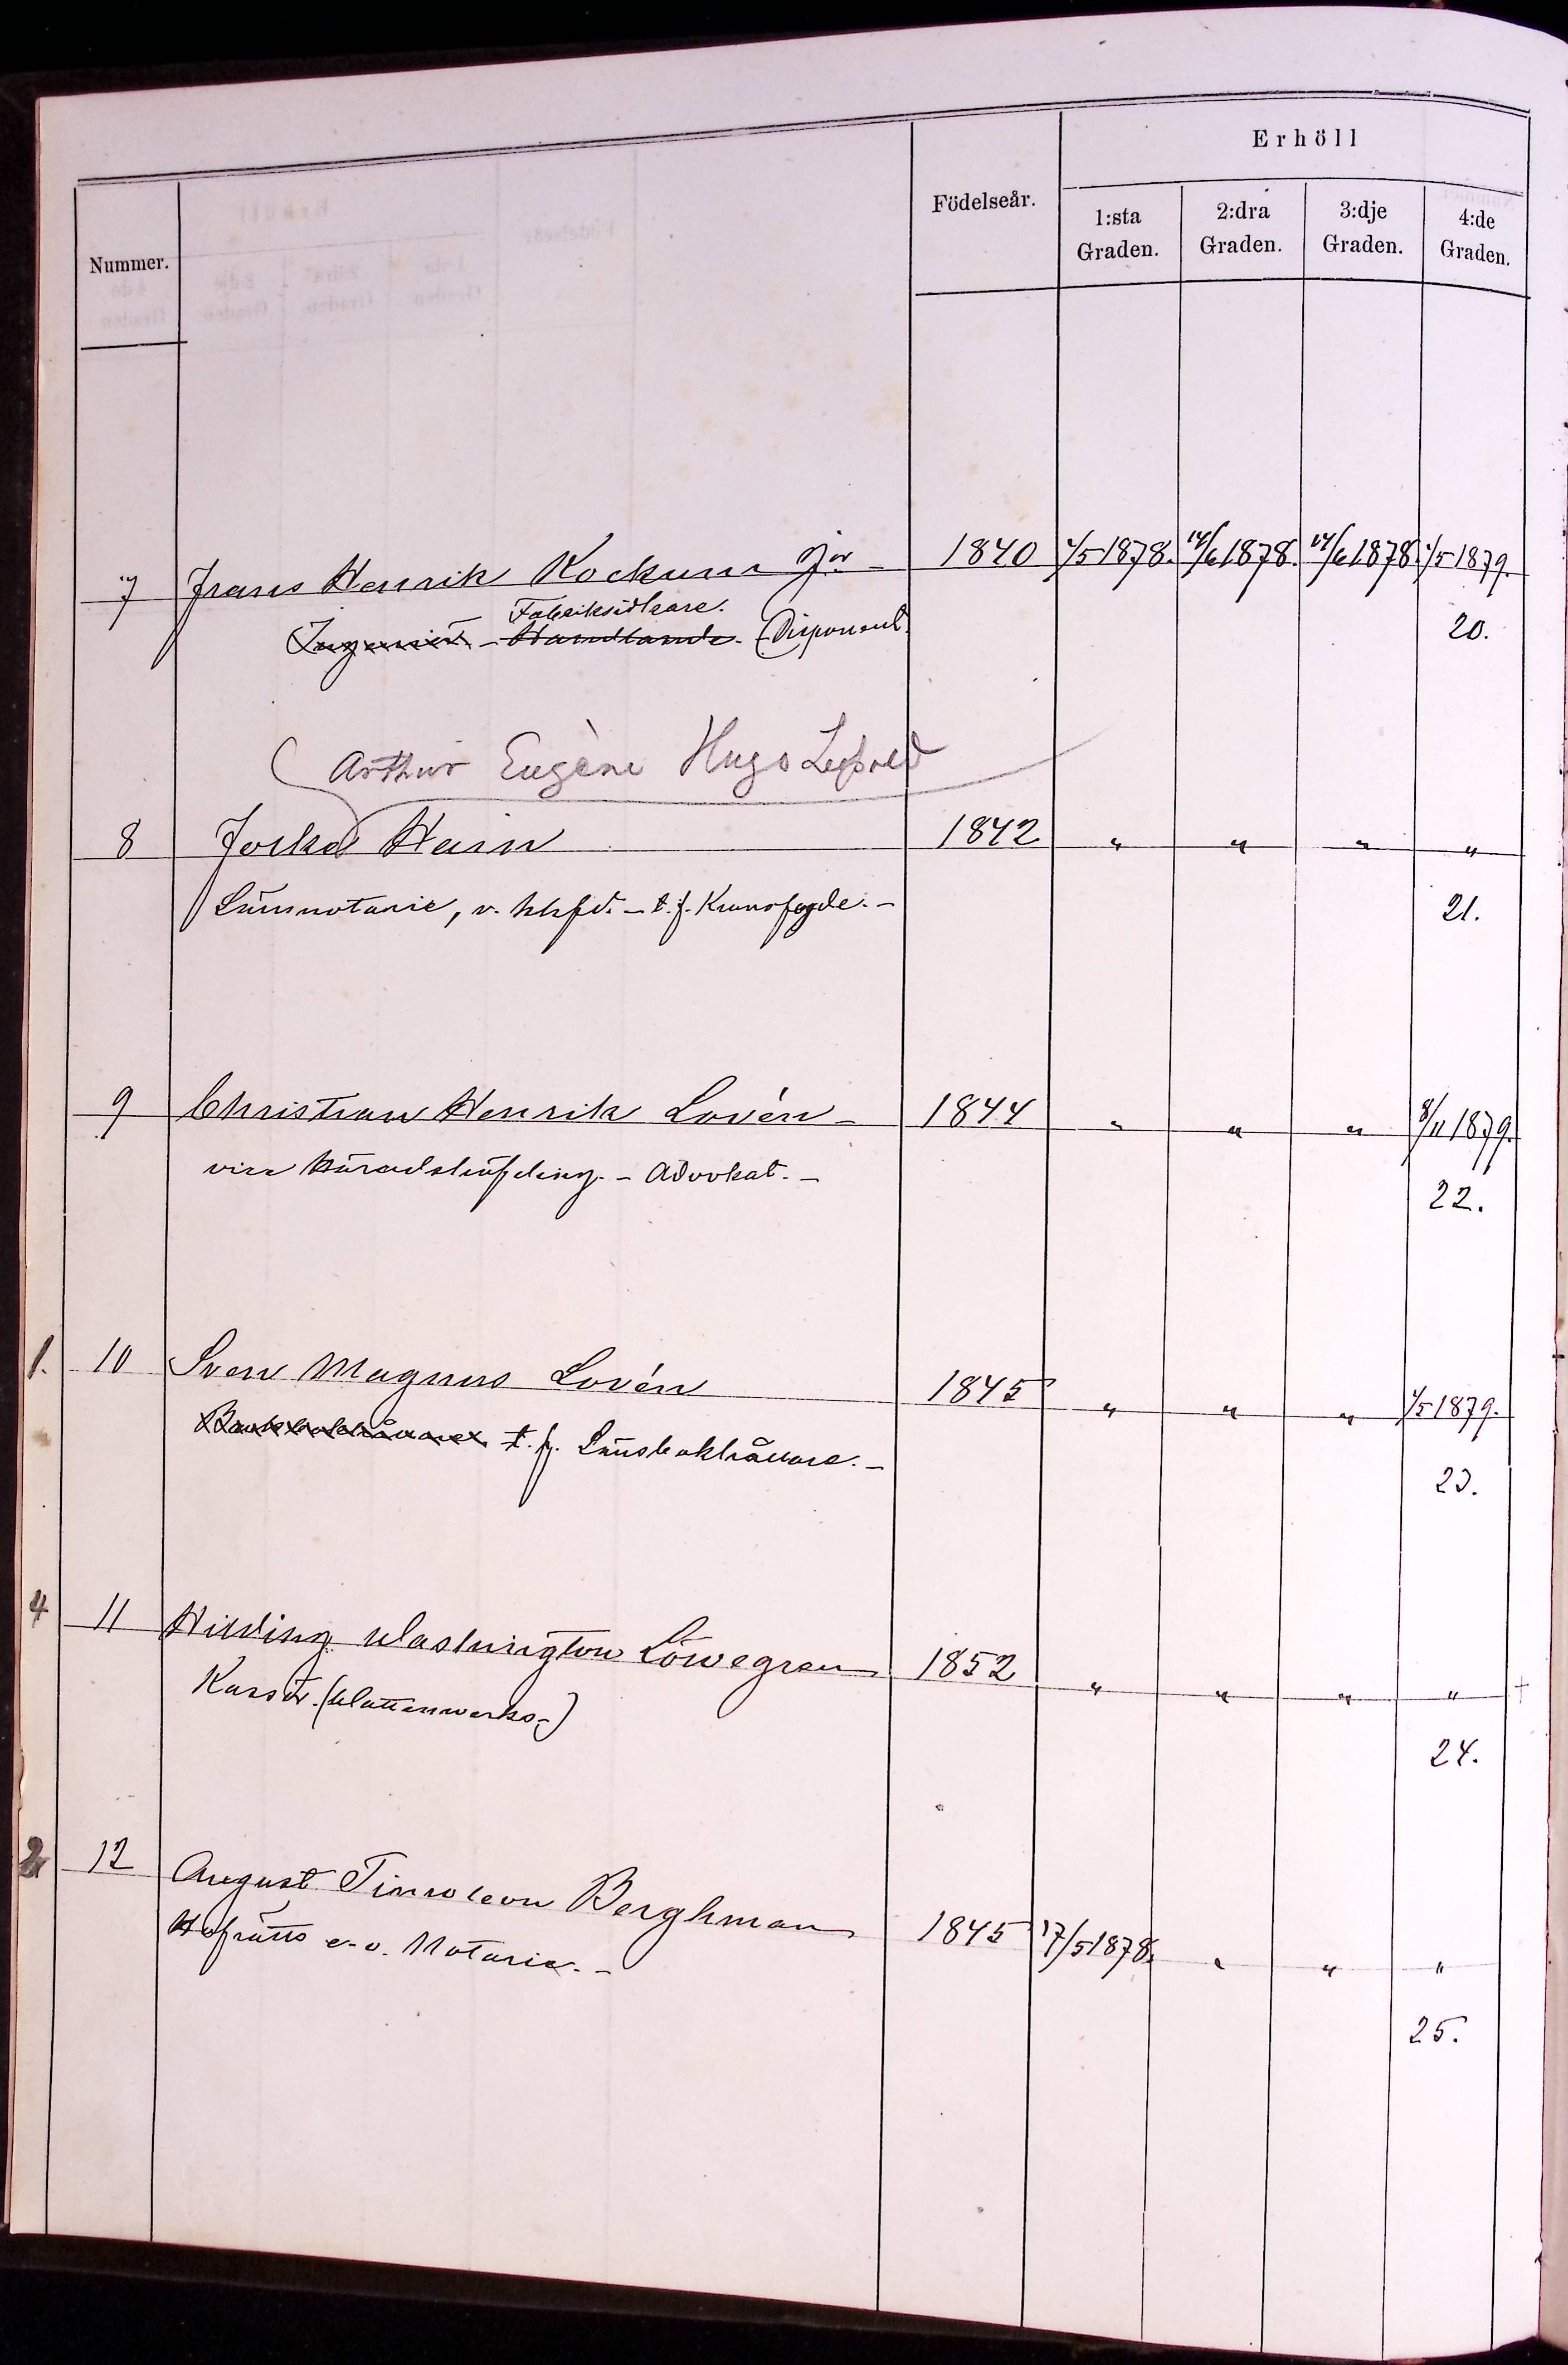 Erhöll
Nummer. Födelseår. 1:sta Graden. 2:dra Graden. 3:dje Graden. 4:de Graden.
7 Frans Henrik Kockum Jor - 1840 1/5 1878. 14/6 1878. 14/6 1878. 1/5 1879.
Fabriksidkare.
Ingeniör - Handlande. (Disponent. 20.
(Arthur Eugène Hugo Leopold
8 Joska Hain 1842 " " " "
Länsnotarie, v. hhfd. - t. f. Kronofogde. - 21.
9 Christian Henrik Lovén - 1844 " " " 8/11 1879.
vice Häradshöfding. - Advokat. - 22.
1. 10 Sven Magnus Lovén 1845 " " " 1/5 1879.
Bankbokhållare. t. f. Länsbokhållare. - 23.
4 11 Hilding Washington Löwegren 1852 " " " " +
Kassör. (Wattenwerks-) 24.
2 12 August Timoleon Berghman 1845 17/5 1878. " " "
Hofrätts e. o. Notarie. - 25.